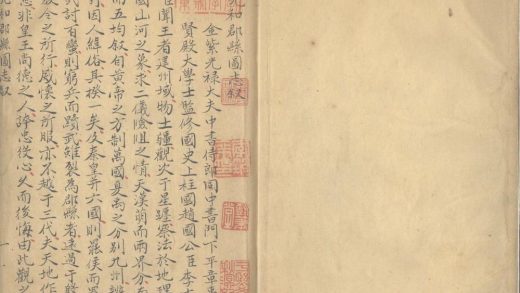 和郡縣圖志叙
金紫光禄大夫中書侍郎同中書門下平章事
賢殿大學士監修國史上柱國趙國公臣李吉
聞王者建州域物土疆觀次于星躔察法於地理
國山河之象求二儀險阻之情天漢萌而兩界分
而五均叙自黄帝之方制萬國夏禹之分別九州辨
因人緯俗其揆一矣及秦皇并六國則罷侯而
武討百蠻則窮兵而黷武雖裂為郡縣者遠過于殷
教令之所行威懷之所服亦不越于三代夫天地作
非皇王尚德之人諍忠從心久而後悔由此觀之
和郡縣圖志叙 一